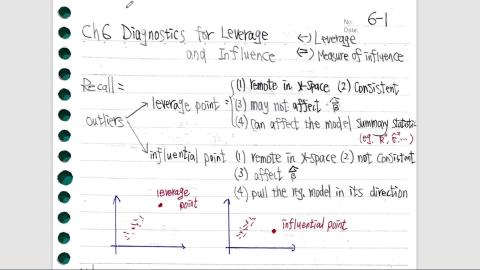 No.
Date.
6-1
Ch6 Diagnostics for Leverage
and Influence
(-) Leverage
(=) Measure of influence
Recall:
outliers
leverage point:
(1) remote in x-space (2) consistent
(3) may not affect β̂
(4) can affect the model summary statistics
(eg. R², σ̂²...)
influential point
(1) remote in x-space (2) not consistent
(3) affect β̂
(4) pull the reg. model in its direction
leverage
point
influential point